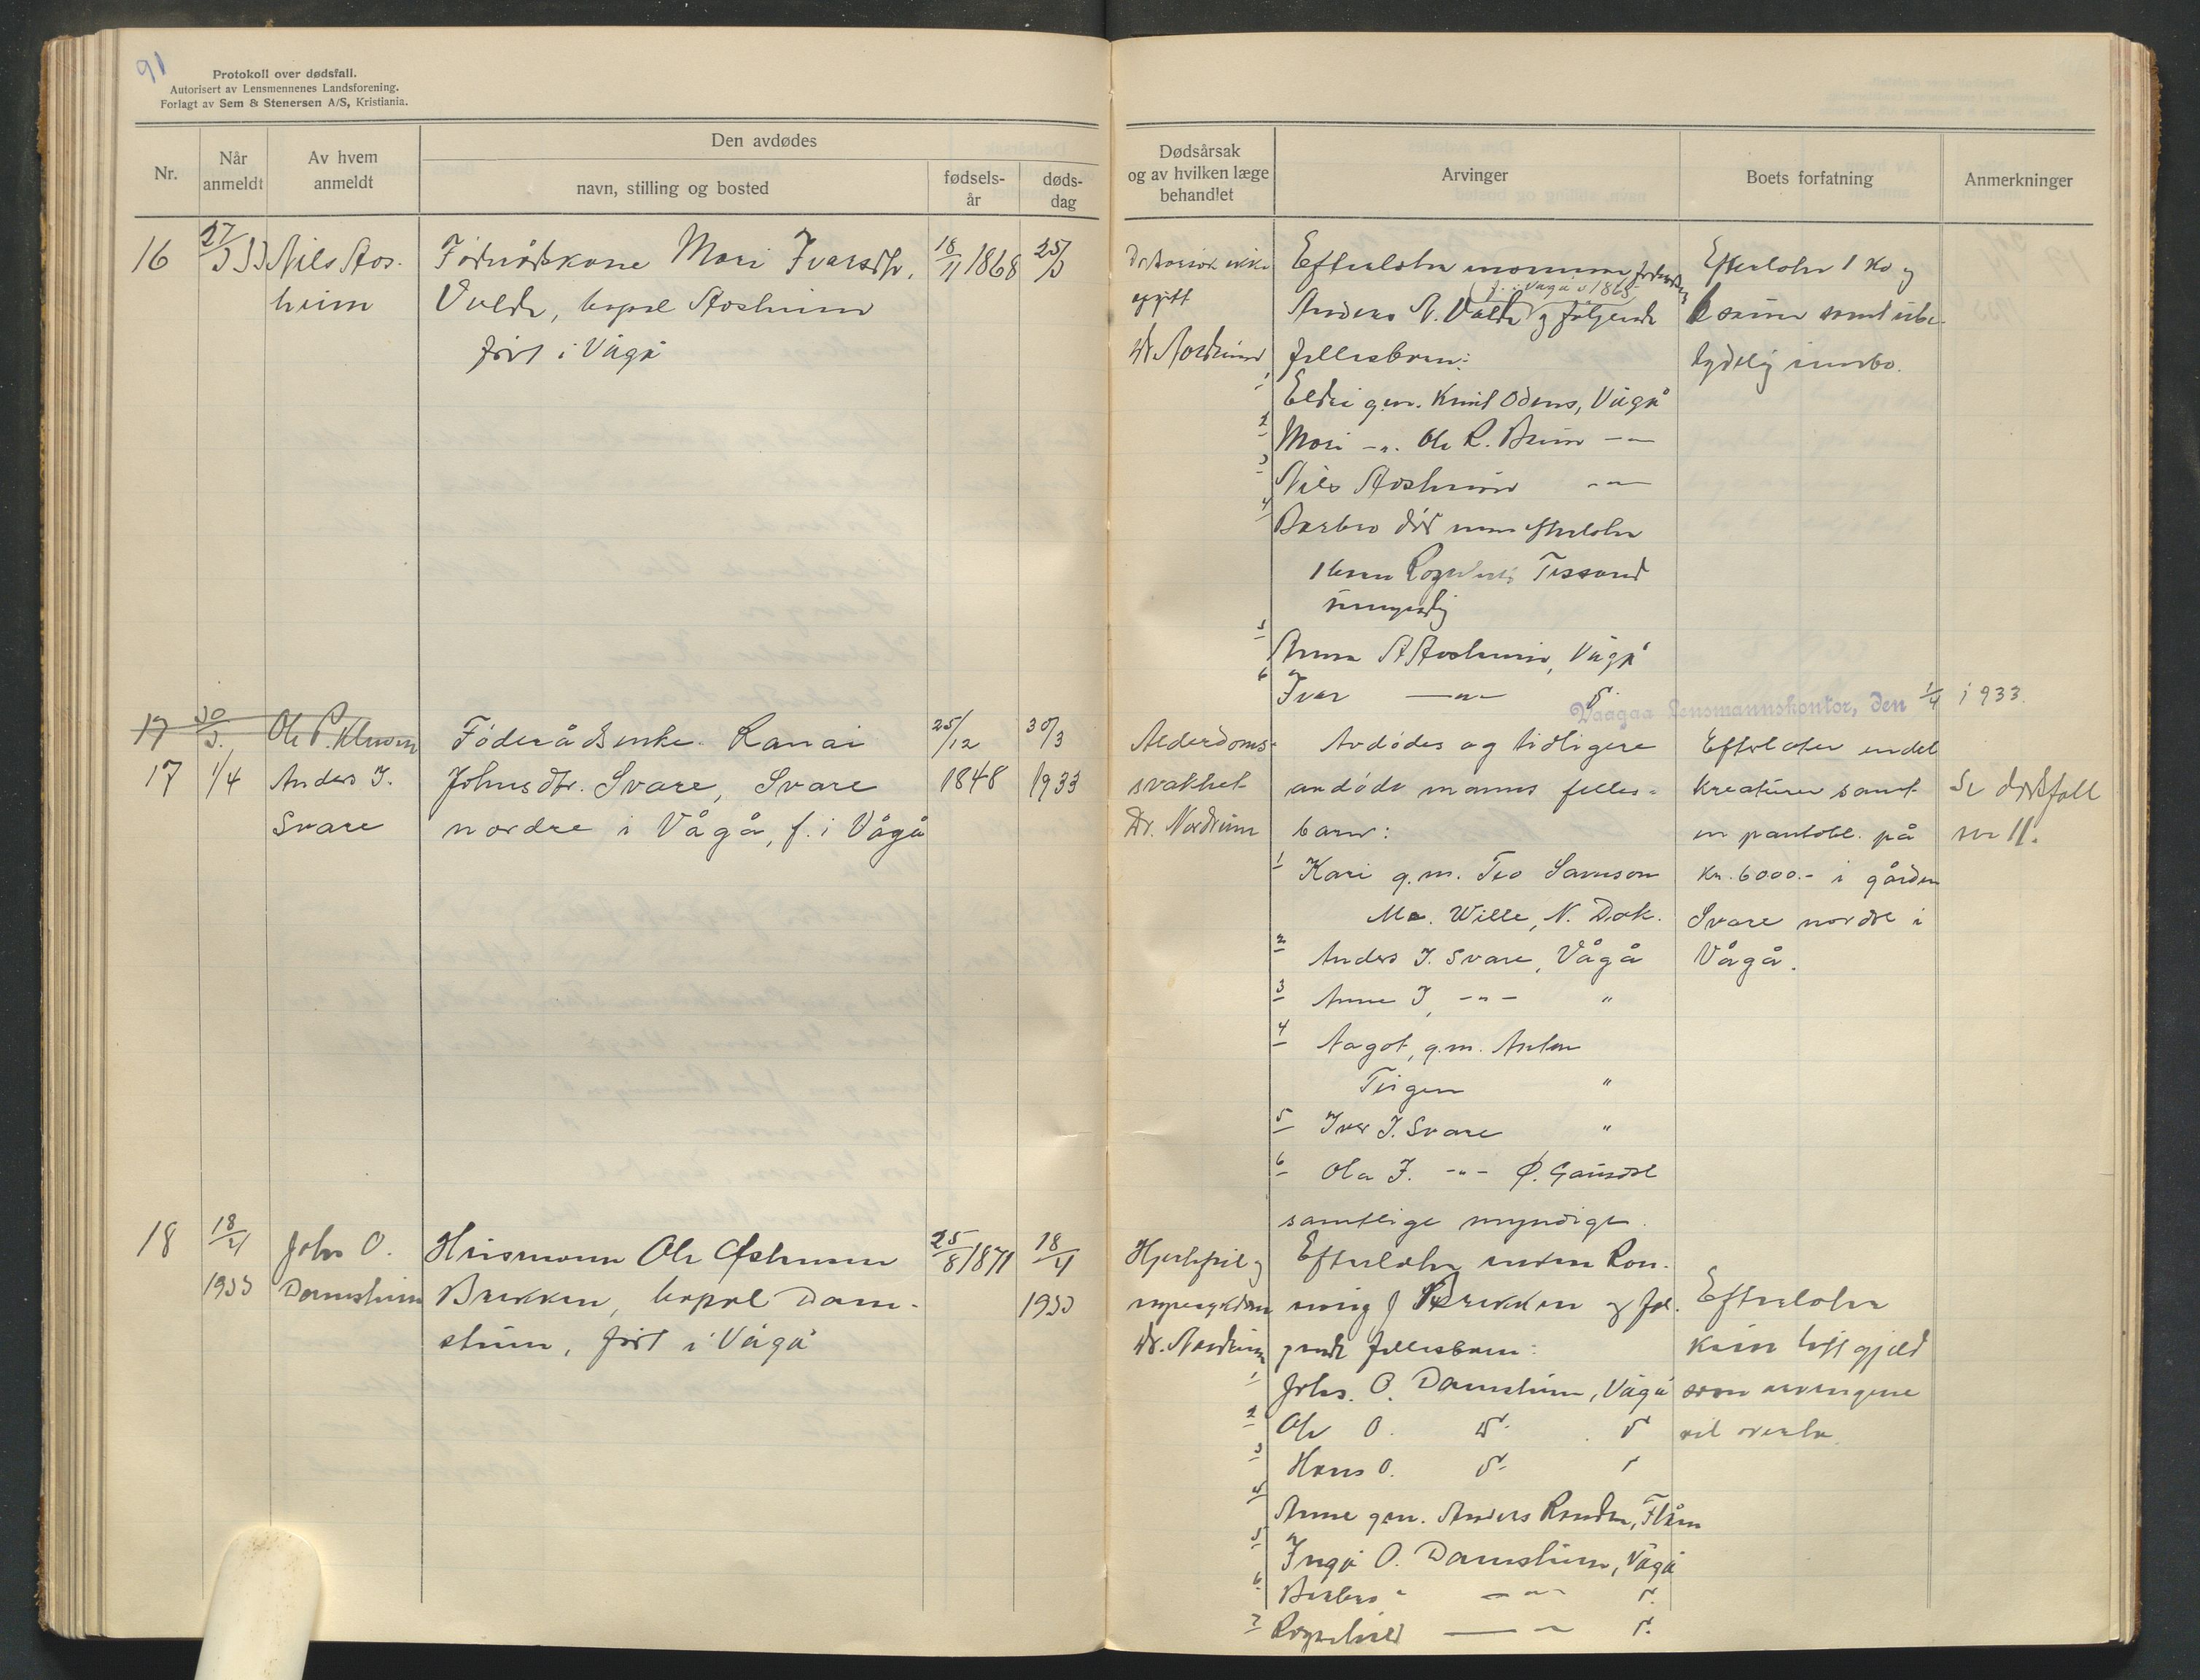 91
Protokoll over dødsfall.
Autorisert av Lensmennenes Landsforening.
Forlagt av Sem & Stenersen A/S, Kristiania.
Nr.
Når anmeldt
Av hvem anmeldt
Den avdødes
navn, stilling og bosted
fødsels-år
døds-dag
Dødsårsak og av hvilken læge behandlet
Arvinger
Boets forfatning
Anmerkninger
16
27/3 33
Nils Aos-
heim
Føderådskone Mari Iversdtr.
Valde, bopel Aosheim
født i Vågå
18/11 1868
25/3
Dødsårsak ikke
opgitt
Dr Nordrum
Efterlater mannen
Anders N. Valde og følgende
(f. i Vågå 1865)
fellesbarn:
1 Eldri g.m. Knut Odens, Vågå
2 Mari -"- Ole R. Bruim -"-
3 Nils Aosheim -"-
4 Barbro død men efterlater
1 barn Tessand
umyndig
5 Anna A Aosheim, Vågå
6 Iver -"- d.
Efterlater 1 ko og
6 sauer samt ube-
tydelig innbo.
Vaagaa lensmannskontor, den 1/4 1933.
17
30/3.
Ole P. Kleven
17
1/4
Anders I.
Svare
Føderådsenke Ranai
Johnsdtr. Svare, Svare
nordre i Vågå, f. i Vågå
25/12
1848
30/3
1933
Alderdoms-
svakhet
Dr. Nordrum
Avdødes og tidligere
avdøde manns felles-
barn:
1 Kari g.m. Teo Samson
Mc. Wille, N. Dak.
2 Anders I. Svare, Vågå
3 Anne I, -"- "
4 Aagot, g.m. Anton
Teigen "
5 Iver I. Svare "
6 Ola I. -"- Ø. Gausdal
samtlige myndige.
Efterlater endel
kreaturer samt
en pantobl. på
kr. 6000.- i gården
Svare nordre i
Vågå.
Se dødsfall
nr 11.
18
18/4
1933
John O.
Damsheim
Husmann Ole Østensen
Brekken, bopel Dam-
sheim, født i Vågå
25/8 1871
18/4
1933
Hjertefeil og
nyresykdom
Dr. Nordrum
Efterlater enken Ron-
naug J Brekken og føl-
gende fellesbarn:
1 Johs. O. Damsheim, Vågå
2 Ole O. d. d
3 Hans O. d. "
4 Anne g.m. Anders Randen, Flåm
5 Inga O. Damsheim, Vågå
6 Barbro " -"- d.
7 Ragnhild -"- d.
Efterlater
kun litt gjeld
som arvingene
vil overta.